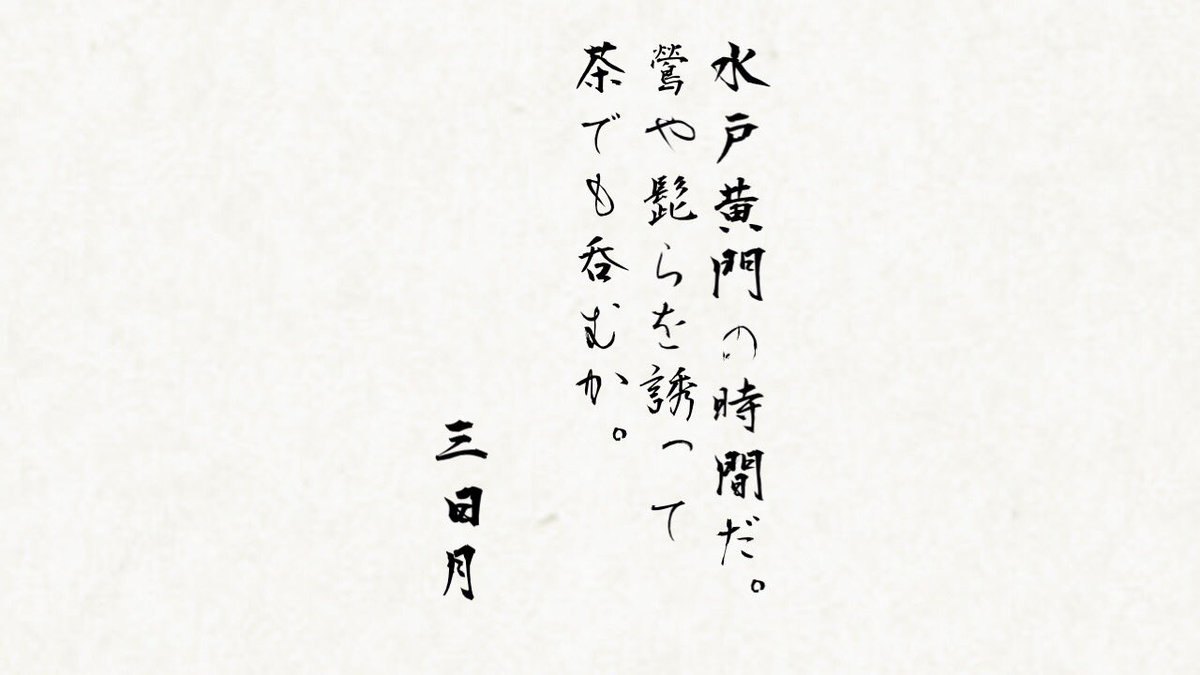 水戸黄門の時間だ。
鶯や髭らを誘って
茶でも呑むか。
三日月